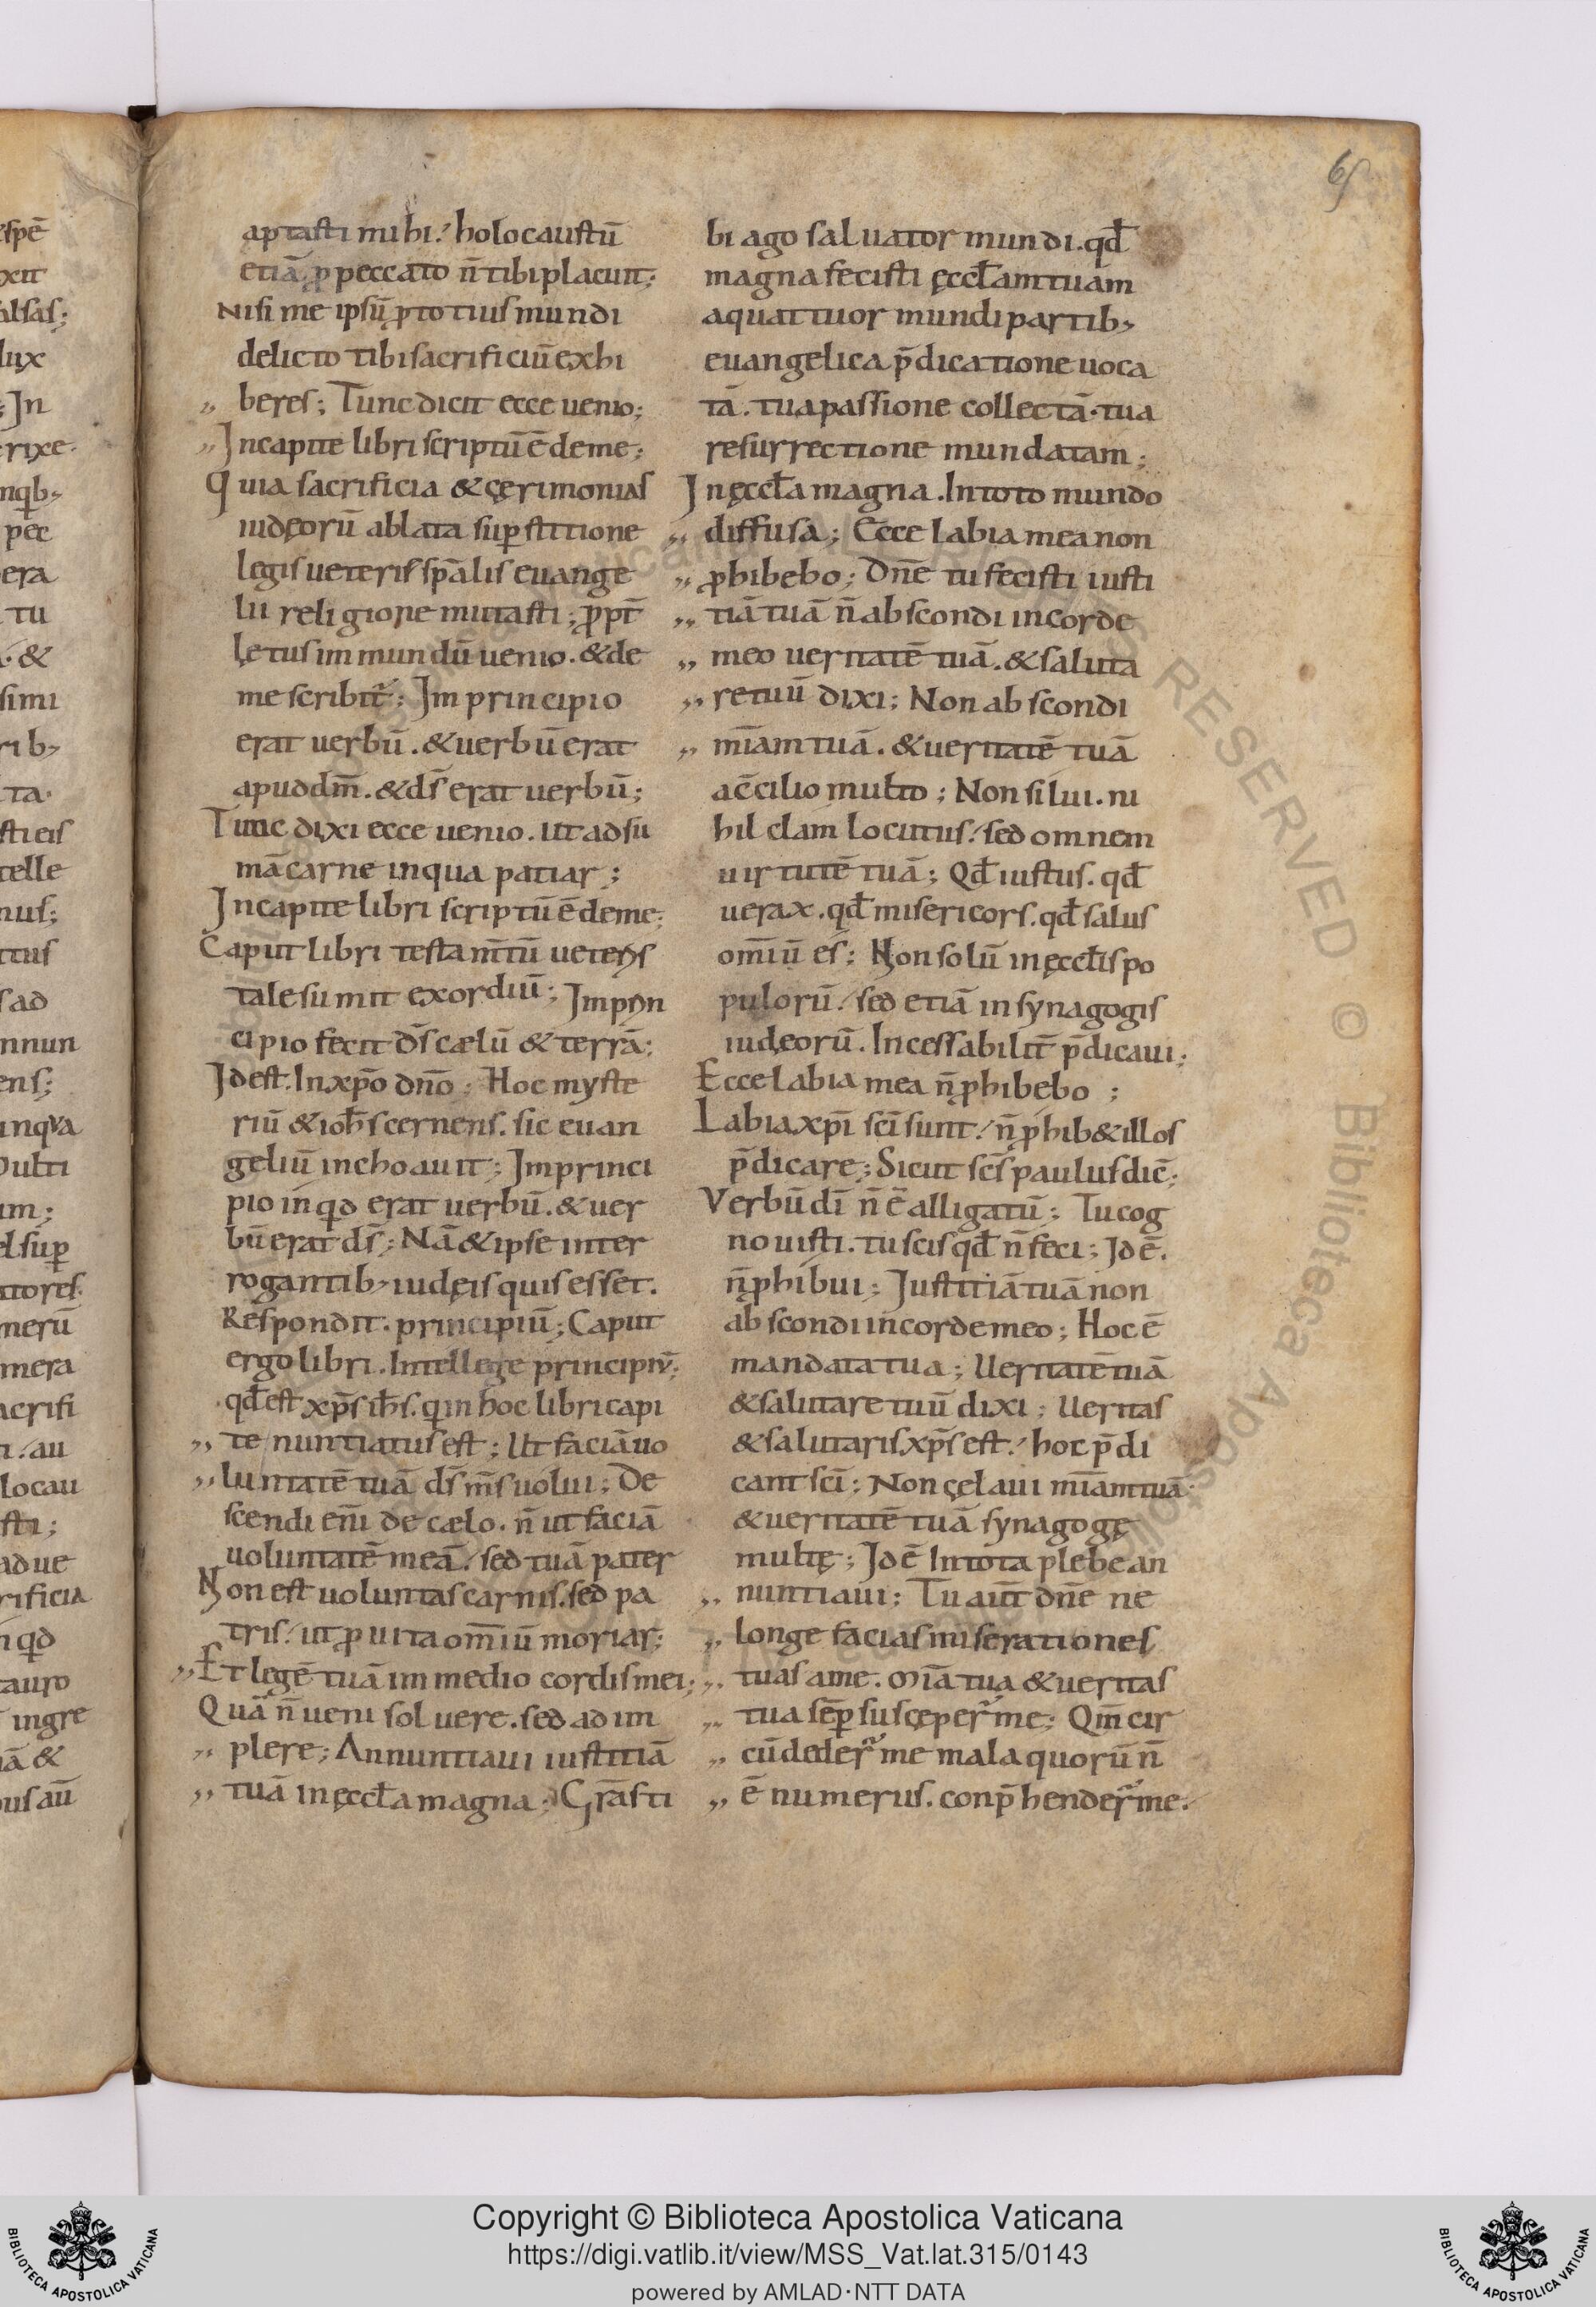 69
aptasti mihi. holocaustū
etiā ꝓ peccato n̄ tibi placuit;
Nisi me ipsū ꝓ totius mundi
delicto tibi sacrificiū exhi
„ beres; Tunc dicit ecce uenio;
„ In capite libri scriptū ē de me;
Quia sacrificia & cęrimonias
iudęorū ablata suꝑstitione
legis ueteris sp̄alis euange
lii religione mutasti; ꝓpt̄
lętus in mundū uenio. & de
me scribit̄; Im principio
erat uerbū. & uerbū erat
apud dm̄. & ds̄ erat uerbū;
Tunc dixi ecce uenio. Ut adsu
mā carne in qua patiar;
In capite libri scriptū ē de me;
Caput libri testam̄tū ueteris
tale sumit exordiū; Im prin
cipio fecit ds̄ cælū & terrā;
Id est. In xp̄o dn̄o; Hoc myste
riū & ioħs cernens. sic euan
geliū inchoauit; Im princi
pio inqđ erat uerbū. & uer
bū erat ds̄; Nā & ipse inter
rogantib; iudęis quis esset.
Respondit. principiū; Caput
ergo libri. Intellege principiū;
qđ est xp̄s ih̄s. qui in hoc libri capi
„ te nuntiatus est; Ut faciā uo
„ luntatē tuā ds̄ ms̄ uolui; De
scendi eni̅ de cælo. n̄ ut faciā
uoluntatē meā. sed tuā pater
Non est uoluntas carnis. sed pa
tris. ut ꝓ uita om̄iū moriar;
„ Et legē tuā im medio cordis mei;
Quā n̄ ueni soluere. sed ad im
„ plere; Annuntiaui iustitiā
„ tuā in ęccła magna; Gr̄as ti
bi ago saluator mundi. qđ
magna fecisti ęccłam tuam
a quattuor mundi partib;
euangelica p̄dicatione uoca
tā. tua passione collectā. tua
resurrectione mundatam;
In ęccła magna. In toto mundo
„ diffusa; Ecce labia mea non
„ ꝓhibebo; Dn̄e tu fecisti iusti
„ tiā tuā n̄ abscondi in corde
„ meo ueritatē tuā. & saluta
„ re tuū dixi; Non abscondi
„ mi̅am tuā. & ueritatē tuā
a c̄cilio multo; Non silui. ni
hil clam locutus. sed omnem
uirtutē tuā; Qđ iustus. qđ
uerax. qđ misericors. qđ salus
om̄iū es; Non solū in ęccłis po
pulorū. sed etiā in synagogis
iudęorū. Incessabilit̄ p̄dicaui;
Ecce labia mea n̄ ꝓhibebo;
Labia xpi̅ sci̅ sunt. n̄ ꝓhib& illos
p̄dicare; Sicut sc̄s paulus dic̄;
Verbū di̅ n̄ ē alligatū; Tu cog
nouisti. tu scis qđ n̄ feci; Id ē.
n̄ ꝓhibui; Iustitiā tuā non
abscondi in corde meo; Hoc ē
mandata tua; Ueritatē tuā
& salutare tuū dixi; Ueritas
& salutaris xp̄s est. hoc p̄di
cant sci̅; Non cęlaui mi̅am tuā
& ueritatē tuā synagogę
multę; Id ē In tota plebe an
„ nuntiaui; Tu aut̄ dn̄e ne
„ longe facias miserationes
„ tuas a me. Mi̅a tua & ueritas
„ tua sēꝑ suscęper̄ me; Qm̄ cir
„ cū deder̄ me mala quorū n̄
„ ē numerus. conp̄hender̄ me.
Copyright © Biblioteca Apostolica Vaticana
https://digi.vatlib.it/view/MSS_Vat.lat.315/0143
powered by AMLAD·NTT DATA
BIBLIOTECA APOSTOLICA VATICANA
BIBLIOTECA APOSTOLICA VATICANA